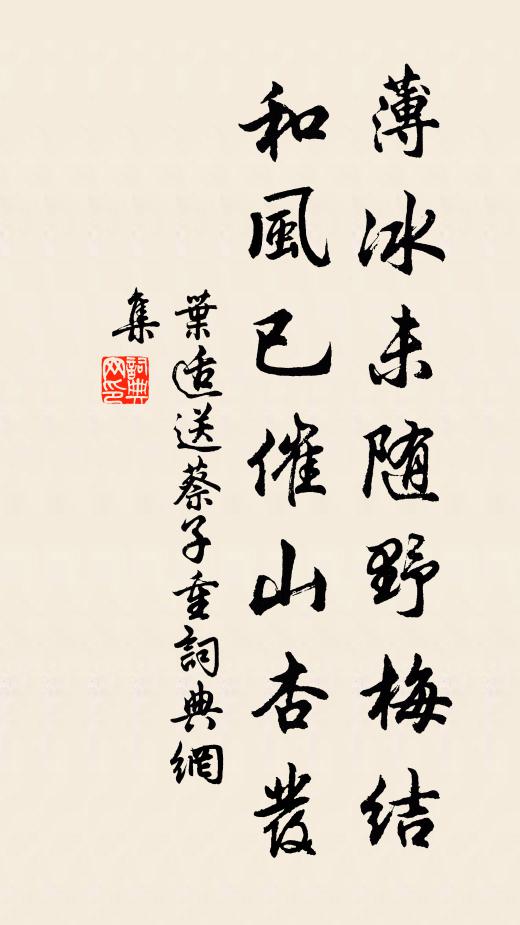 薄冰未随野梅结
和風已催山杏發
葉适送蔡子重詞典網
集
詞典网印